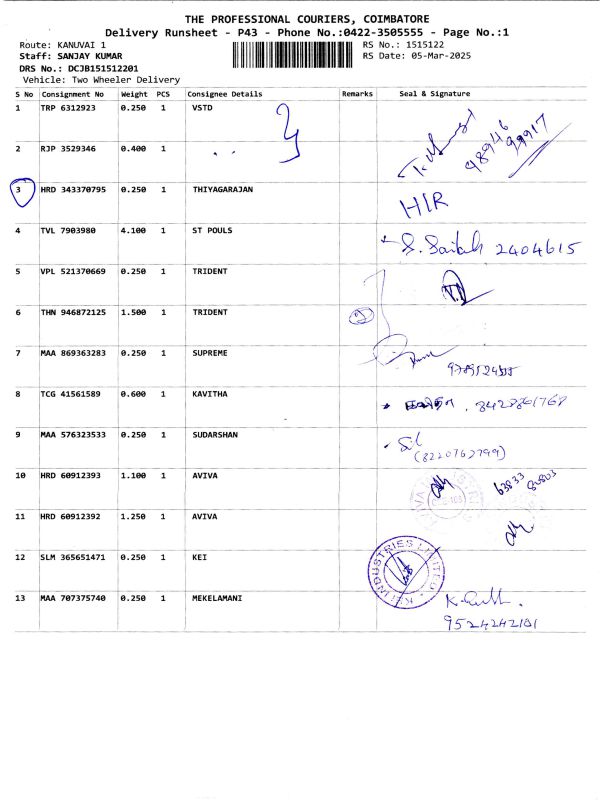 THE PROFESSIONAL COURIERS, COIMBATORE
Delivery Runsheet - P43 - Phone No.:0422-3505555 - Page No.:1
Route: KANUVAI 1 RS No.: 1515122
Staff: SANJAY KUMAR RS Date: 05-Mar-2025
DRS No.: DCJB151512201
Vehicle: Two Wheeler Delivery
S No Consignment No Weight PCS Consignee Details Remarks Seal & Signature
1 TRP 6312923 0.250 1 VSTD
98946 99917
2 RJP 3529346 0.400 1
3 HRD 343370795 0.250 1 THIYAGARAJAN HIR
4 TVL 7903980 4.100 1 ST POULS 2404615
5 VPL 521370669 0.250 1 TRIDENT
6 THN 946872125 1.500 1 TRIDENT
7 MAA 869363283 0.250 1 SUPREME
8 TCG 41561589 0.600 1 KAVITHA
9 MAA 576323533 0.250 1 SUDARSHAN
(8220762799)
10 HRD 60912393 1.100 1 AVIVA 63833 80803
11 HRD 60912392 1.250 1 AVIVA
12 SLM 365651471 0.250 1 KEI KEI INDUSTRIES LIMITED
13 MAA 707375740 0.250 1 MEKELAMANI
9524242101